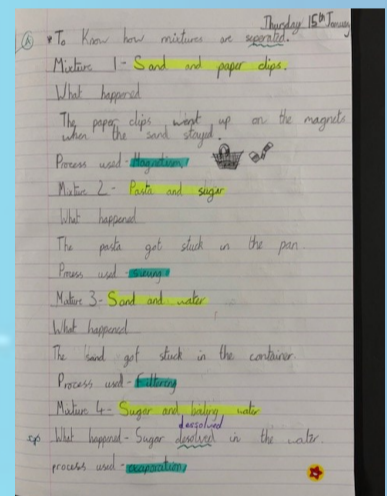 Thursday 15th January
To Know how mixtures are seperated.
Mixture 1 - Sand and paper clips.
What happened
The paper clips went up on the magnets
when the sand stayed.
Process used - Magnetism
Mixture 2 - Pasta and sugar
What happened
The pasta got stuck in the pan.
Process used - sieving
Mixture 3 - Sand and water
What happened
The sand got stuck in the container.
Process used - Filtering
Mixture 4 - Sugar and boiling water
dessolved
sp What happened - Sugar desolved in the water.
process used - evaporation